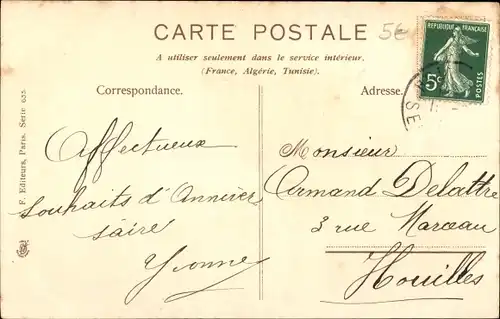 CARTE POSTALE
5€
A utiliser seulement dans le service intérieur.
(France, Algérie, Tunisie).
REPUBLIQUE FRANÇAISE
5c
POSTES
Correspondance.
Adresse.
F. Editeurs, Paris. Série 633.
Affectueux
souhaits d'Anniver
saire
Yvonne
Monsieur
Armand Delattre
3 rue Marceau
Houilles